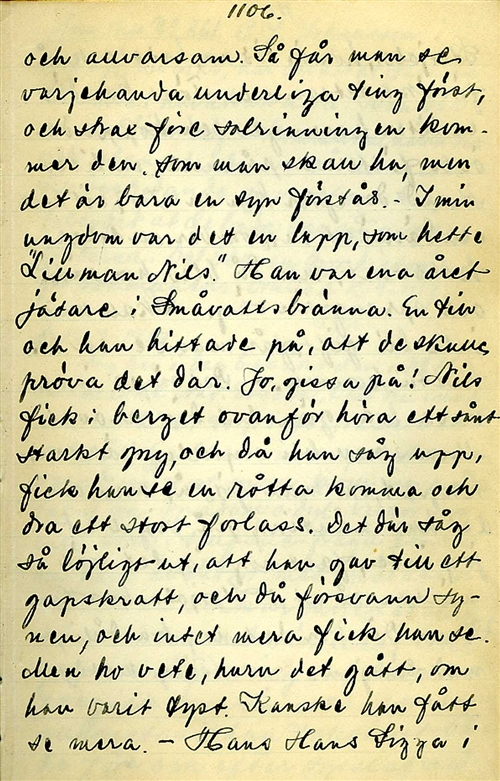 1106.
och allvarsam. Så får man se
varjehanda underliga ting först,
och strax före solrinningen kom-
mer den, som man skall ha, men
det är bara en syn förstås. - I min
ungdom var det en lapp, som hette
"Lillman Nils." Han var ena året
jätare i Småvattsbränna. En till
och han hittade på, att de skulle
pröva det där. Jo, gissa på! Nils
fick i berget ovanför höra ett sånt
starkt gny, och då han såg upp,
fick han se en råtta komma och
dra ett stort forlass. Det där såg
så löjligt ut, att han gav till ett
gapskratt, och då försvann sy-
nen, och intet mera fick han se.
Men ho vete, huru det gått, om
han varit tyst. Kanske han fått
se mera. - Hans Hans Sigga i